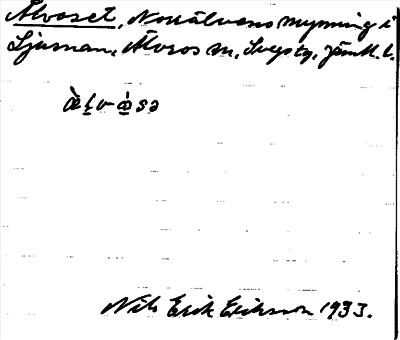 Älvoset, Norrälvens mynning i
Ljusnan, Älvros sn, Svegs tg, Jämtl. l.
æ̀ḷv-æ̀sə
Nils Erik Eriksson 1933.